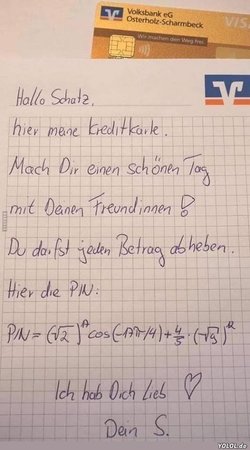 Volksbank eG
Osterholz-Scharmbeck
VISA
Wir machen den Weg frei.
Hallo Schatz,
hier meine Kreditkarte.
Mach Dir einen schönen Tag
mit Deinen Freundinnen!
Du darfst jeden Betrag abheben.
Hier die PIN:
PIN = (√2) cos(-17π/4) + 4/5 · (-√5)
Ich hab Dich Lieb ♡
Dein S.
YOLOL.de